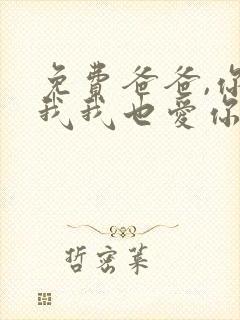 免费爸爸,你
我我也爱你
哲密莱